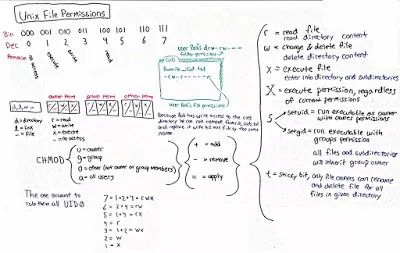 Unix File Permissions
Bin 000 001 010 011 100 101 110 111
Dec 0 1 2 3 4 5 6 7
no access
execute
write
read
d, l, -
owner perm
group perm
other perm
r/w/x
r/w/x
r/w/x
d = directory
l = link
- = file
r = read
w = write
x = execute
- = no access
User Bob's drw-rw----
Because Bob has write access to the cats
directory he can
and replace it with his own file by the same
name.
CHMOD
u = owner
g = group
o = other (not owner or group members)
a = all users
+ = add
- = remove
= = apply
The one account to
rule them all UID 0
7 = 1+2+4 = rwx
6 = 2+4 = rw
5 = 1+4 = rx
4 = r
3 = 1+2 = wx
2 = w
1 = x
r = read file
read directory content
w = change & delete file
delete directory content
x = execute file
enter into directory and subdirectories
X = execute permission, regardless
of current permissions
s
setuid = run executable as owner
with owners permissions
setgid = run executable with
groups permission
all files and subdirectories
will inherit group owner
t = sticky bit, only file owners can rename
and delete file for all
files in given directory